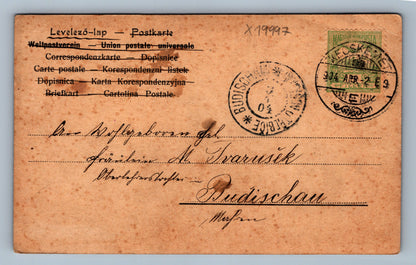 X19997
Levelező-lap — Postkarte
Weltpostverein — Union postale universale
Correspondenzkarte — Dopisnice
Carte postale — Korespondenzni listek
Dopisnica — Karta Korespondenzyjna
Briefkart — Cartolina Postale.
KECSKEMÉT
904 APR 2
BUDISCHAU
An Wohlgeboren
Fräulein M. Svarušek
Oberlehrerstochter
Budischau
Mähren